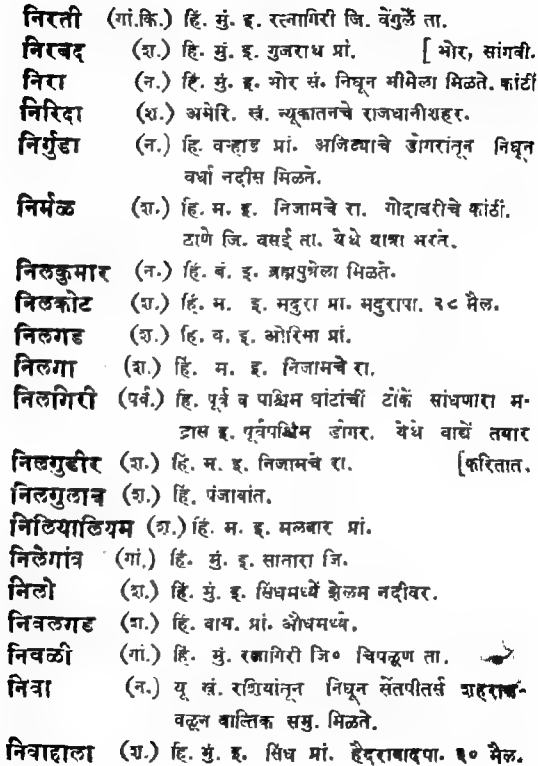 निरती (गां.कि.) हिं. मुं. इ. रत्नागिरी जि. वेंगुर्ले ता.
निरबद (श.) हिं. मुं. इ. गुजराथ प्रां. [ भोर, सांगवी.
निरा (न.) हिं. मुं. इ. भोर सं. निघून भीमेला मिळते. कांठीं
निरिदा (श.) अमेरि. खं. न्यूकातनचे राजधानीशहर.
निर्गुडा (न.) हि. वऱ्हाड प्रां. अजिंट्याचे डोगरांतून निघून
वर्धा नदीस मिळते.
निर्मळ (श.) हि. म. इ. निजामचे रा. गोदावरीचे कांठीं.
ठाणे जि. वसई ता. येथे यात्रा भरते.
निलकुमार (न.) हिं. बं. इ. ब्रह्मपुत्रेला मिळते.
निलकोट (श.) हिं. म. इ. मदुरा प्रा. मदुरापा. २८ मैल.
निलगड (श.) हि. व. इ. ओरिसा प्रां.
निलगा (श.) हिं. म. इ. निजामचे रा.
निलगिरी (पर्व.) हि. पूर्व व पाश्चिम घांटांचीं टोंकें सांधणारा म-
द्रास इ. पूर्वपश्चिम डोगर. येथे वाद्यें तयार
निलगुडीर (श.) हिं. म. इ. निजामचे रा. [करितात.
निलगुलाब (श.) हिं. पंजाबांत.
निलियालियम (श.) हिं. म. इ. मलबार प्रां.
निलेगांव (गां.) हिं. मुं. इ. सातारा जि.
निलो (श.) हिं. मुं. इ. सिंधमध्यें झेलम नदीवर.
निवलगड (श.) हिं. वाय. प्रां. औधमध्ये.
निवळी (गां.) हिं. मुं. रत्नागिरी जि० चिपळूण ता.
निवा (न.) यू खं. रशियांतून निघून सेंतपीतर्स शहरा-
वळून वाल्तिक समु. मिळते.
निवाहाला (श.) हि. मुं. इ. सिंध प्रां. हैदराबादपा. ६० मैल.